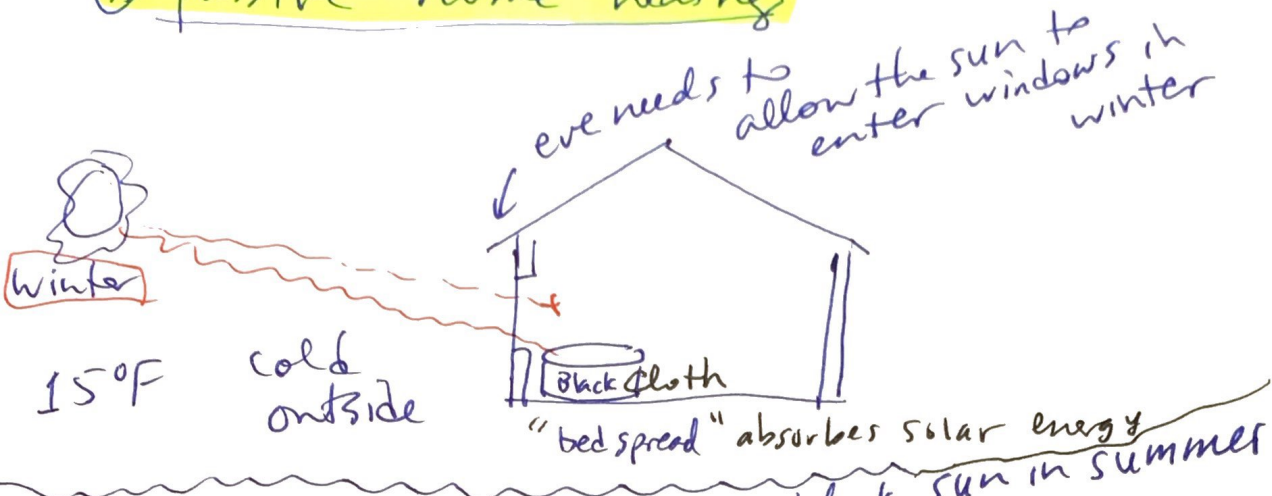 home heating
eve needs to
allow the sun to
enter windows in
winter
Winter
15°F
cold
outside
Black Cloth
"bed spread" absorbes solar energy
sun in summer